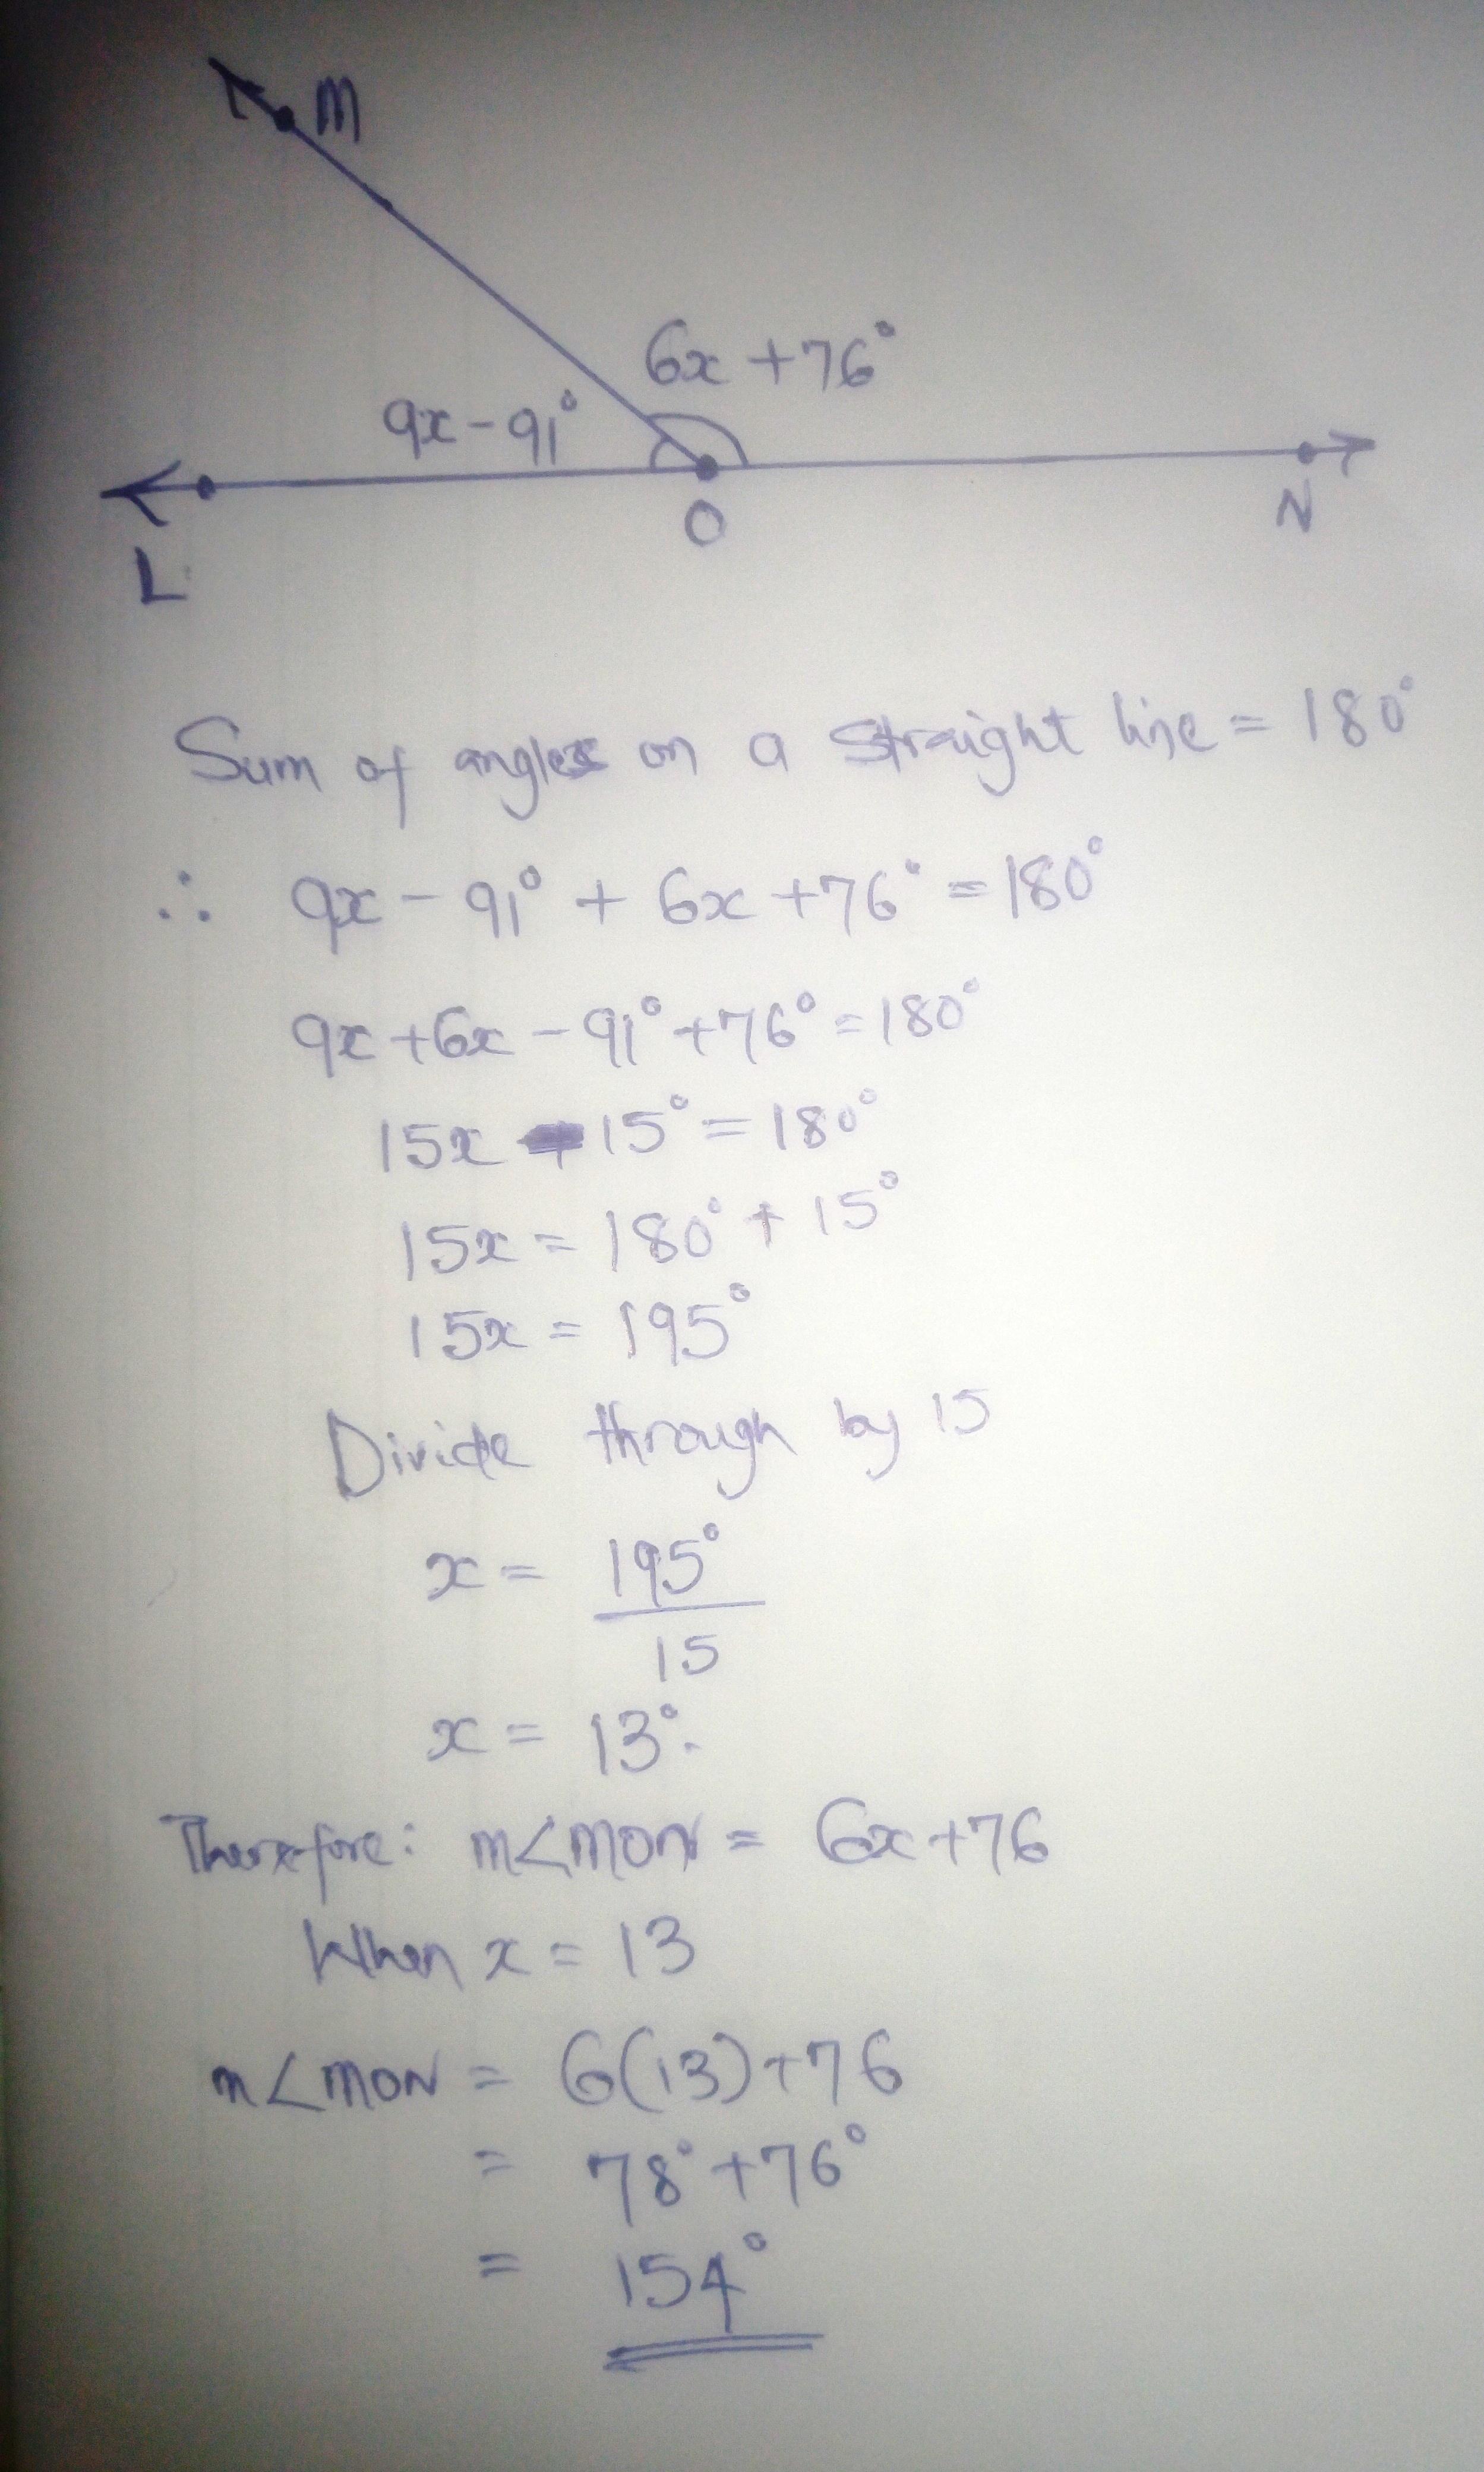 M
6x + 76°
9x - 91°
O
N
L
Sum of angles on a straight line = 180°
∴ 9x - 91° + 6x + 76° = 180°
9x + 6x - 91° + 76° = 180°
15x - 15° = 180°
15x = 180° + 15°
15x = 195°
Divide through by 15
x = 195°
15
x = 13°.
Therefore: m∠MON = 6x + 76
When x = 13
m∠MON = 6(13) + 76
= 78° + 76°
= 154°